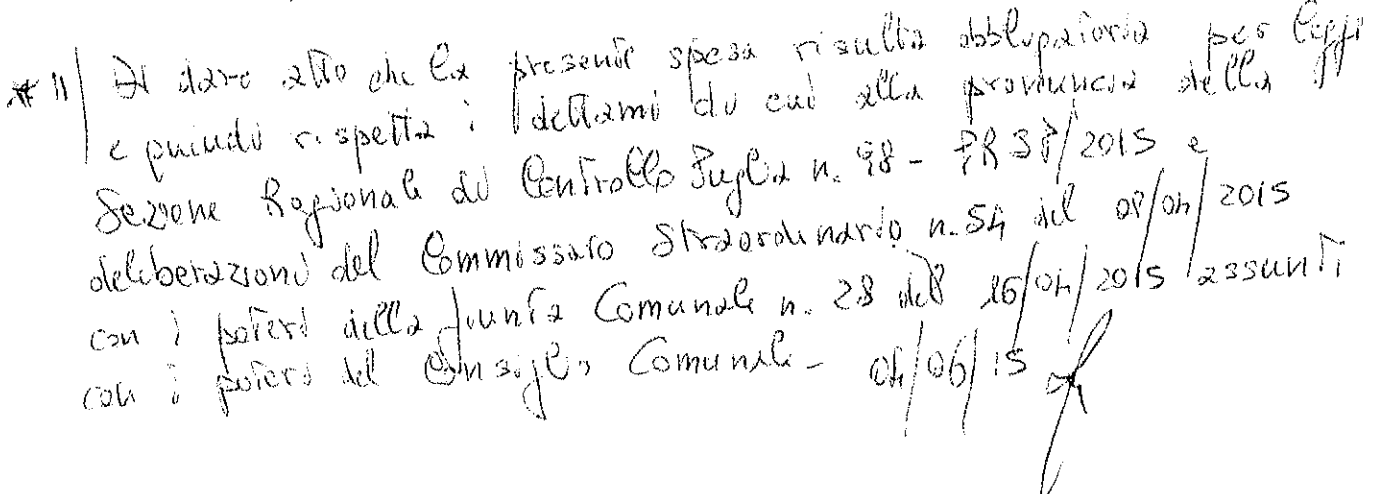 * 11) Di dare atto che la presente spesa risulta obbligatoria per legge
e quindi rispetta i dettami di cui alla pronuncia della
Sezione Regionale di Controllo Puglia n. 98 - PRSP/2015 e
deliberazioni del Commissario Straordinario n. 54 del 08/04/2015
con i poteri della Giunta Comunale n. 28 del 16/04/2015 assunti
con i poteri del Consiglio Comunale - 04/06/15